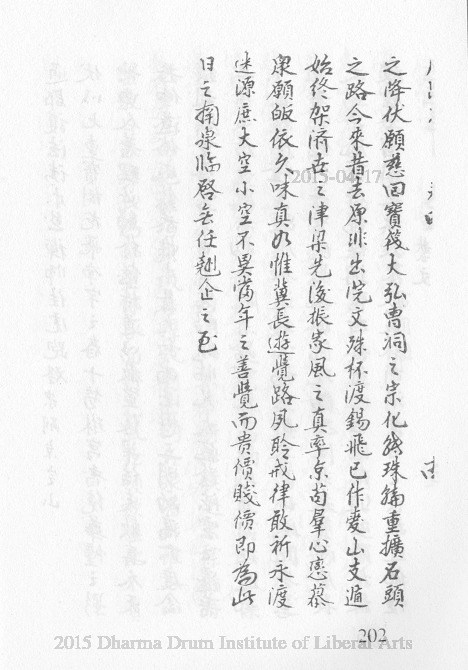 之降伏願慈回寶筏大弘曹洞之宗化熊珠編重擴石頭
之路今來昔去原非出院文殊杯渡錫飛已作愛山支遁
始終架濟世之津梁先後振家風之真率京苟羣心戀慕
衆願皈依久味真如惟冀長遊覺路夙聆戒律敢祈永渡
迷源庶大空小空不異當年之善覺而貴價賤價即為此
日之南泉臨啓無任翹企之至
2015-04-17
202
2015 Dharma Drum Institute of Liberal Arts